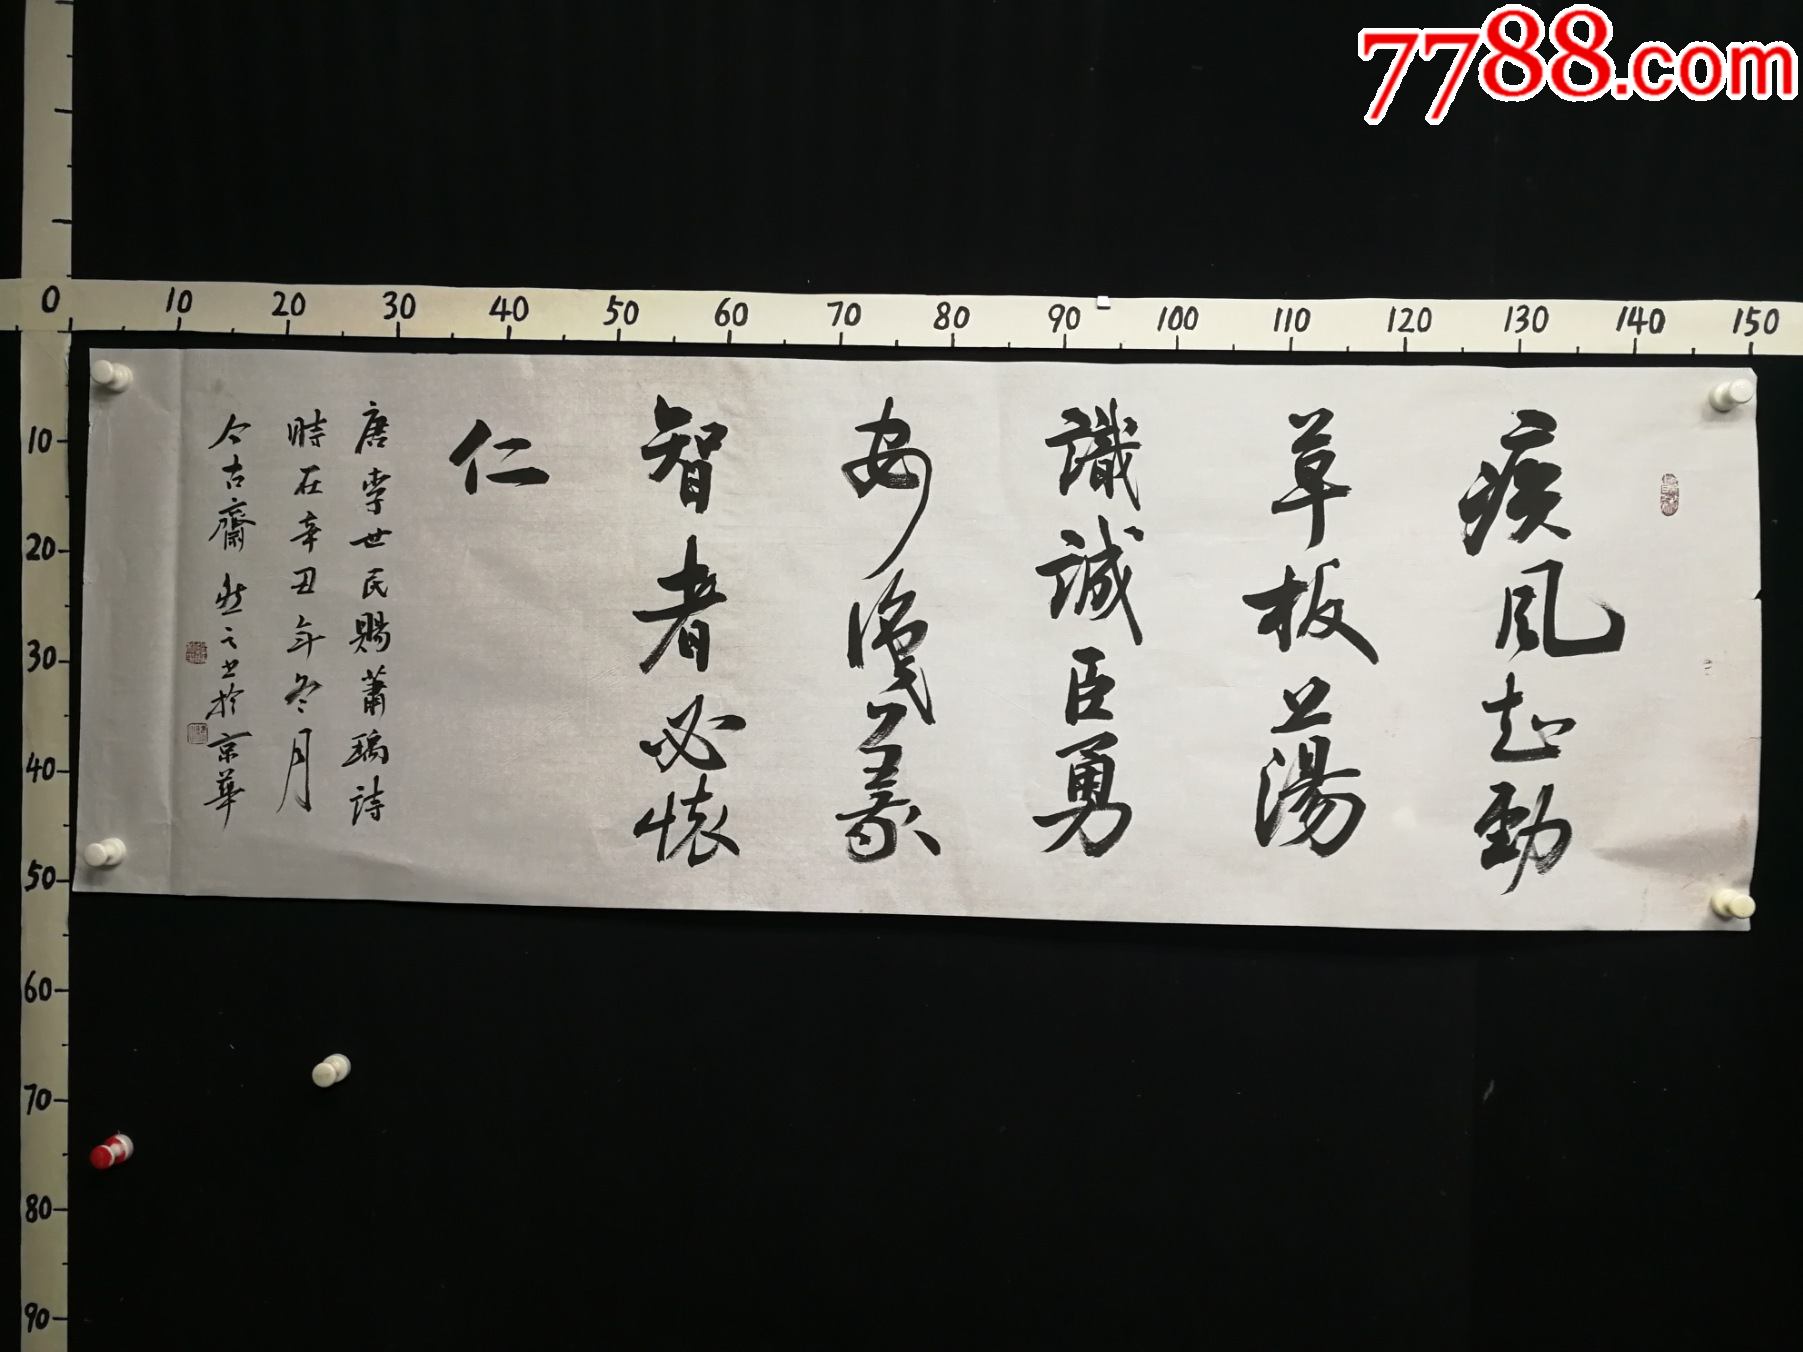 7788.com
0 10 20 30 40 50 60 70 80 90 100 110 120 130 140 150
10
20
30
40
50
60
70
80
90
疾風知勁
草板蕩
識誠臣勇
安識義
智者必懷
仁
唐李世民賜蕭瑀詩
時在辛丑年冬月
今古齋然之书於京華